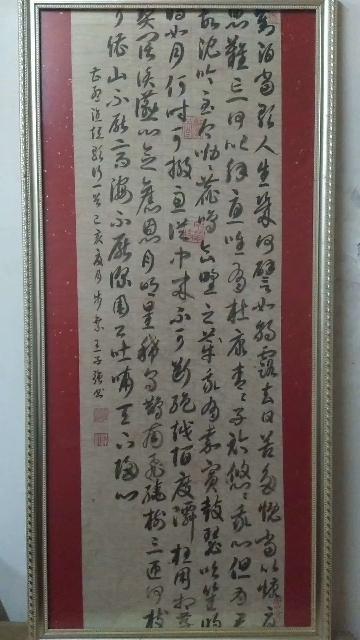 對酒當歌人生幾何譬如朝露去日苦多慨當以慷憂
思難忘何以解憂唯有杜康青〻子衿悠〻我心但為君
故沈吟至今呦〻鹿鳴食野之苹我有嘉賓鼓瑟吹笙明
明如月何時可掇憂從中來不可斷絕越陌度阡枉用相存
契闊談讌心念舊恩月明星稀烏鵲南飛繞樹三匝何枝
可依山不厭高海不厭深周公吐哺天下歸心
孟德短歌行一首己亥夏月王子强书